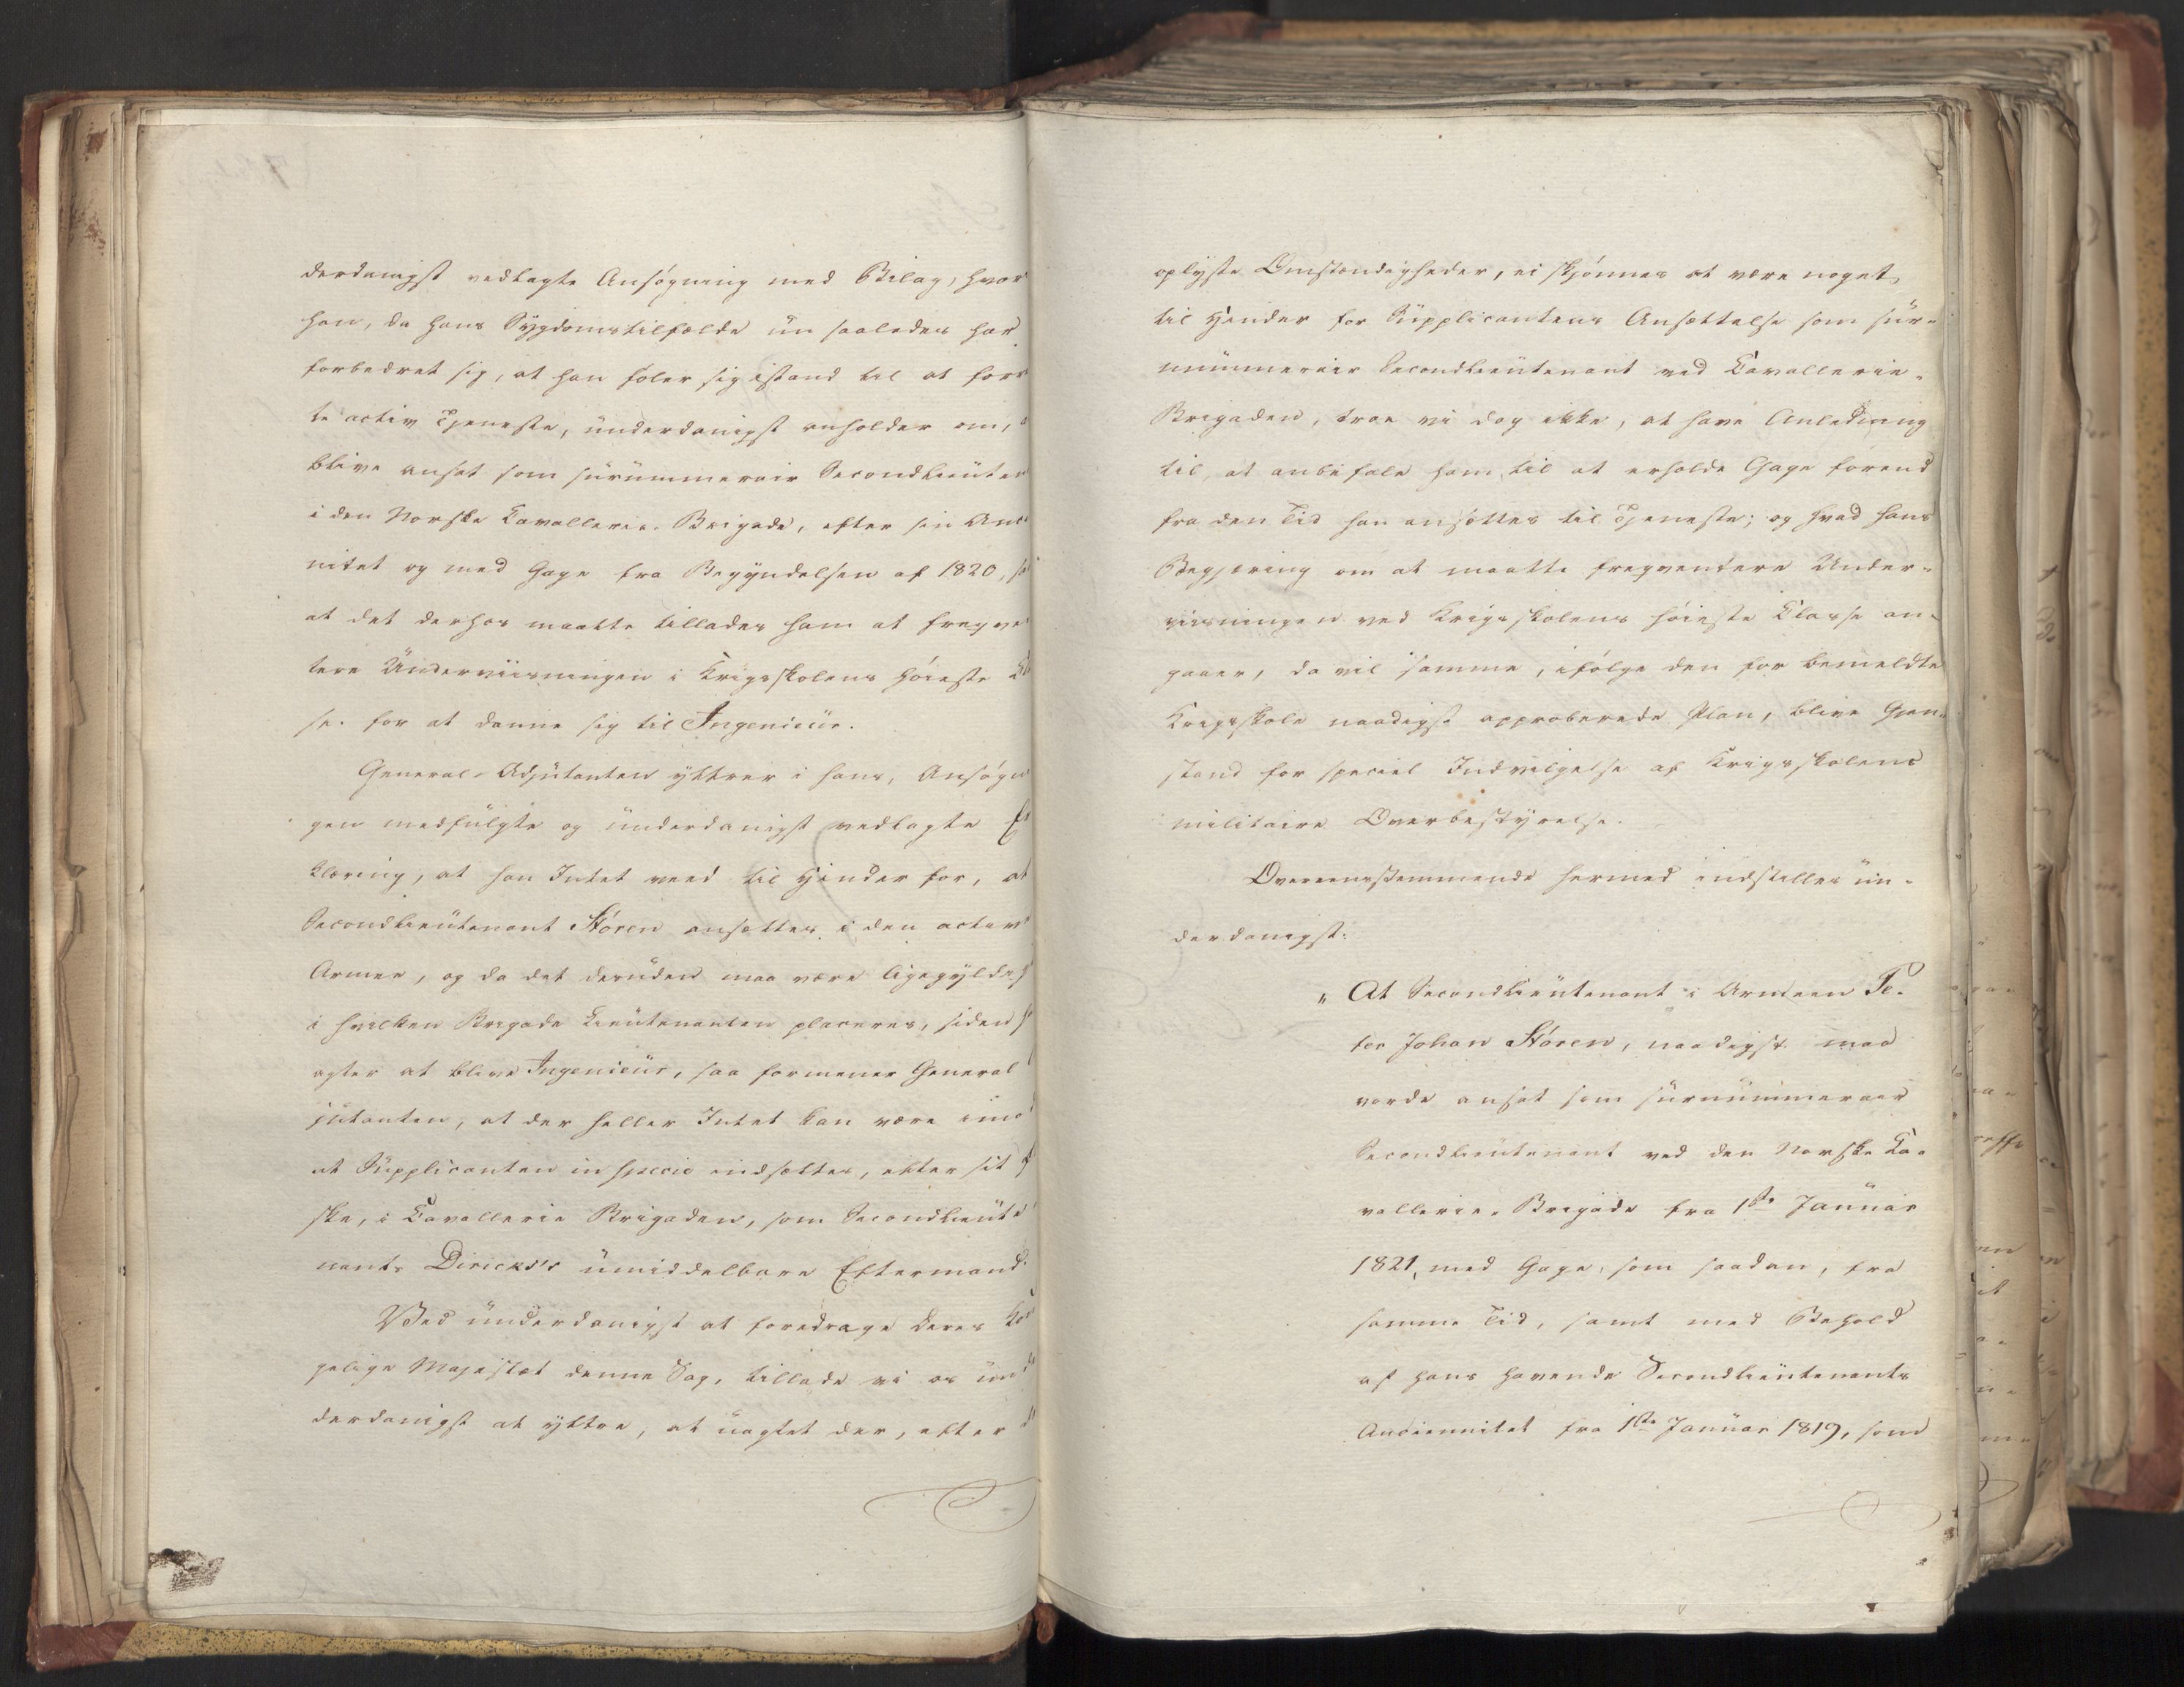 derdanigst vedlagte Ansøgning med Bilag, hvor
han, da hans Sygdomstilfælde nu saaledes har
forbedret sig, at han føler sig istand til at forr
te activ Tjeneste, underdanigst anholder om,
blive ansat som surnummerair Secondlieuten
i den Norske Cavallerie-Brigade, efter sin Anc
nitet og med Gage fra Begyndelsen af 1820, sa
at det derhos maatte tillades ham at freqve
tere Underviisningen i Krigsskolens høieste Cla
se. for at danne sig til Ingenieur.
General-Adjutanten yttrer i hans, Ansøgn
gen medfulgte og underdanigst vedlagte Er
klæring, at han Intet veed til Hinder for, at
Secondlieutenant Stören ansættes i den active
Armee, og da det desuden maa være ligegyldig
i hvilken Brigade Lieutenanten placeres, siden h
agter at blive Ingenieur, saa formener General
jutanten, at der heller Intet kan være imo
at Supplicanten in specie indsættes, efter sit
ske, i Cavallerie Brigaden, som Secondlieute
nant Diricks's umiddelbare Eftermand.
Ved underdanigst at foredrage Deres Kon
gelige Majestæt denne Sag, tillade vi os un
derdanigst at yttre, at uagtet der, efter d
oplyste Omstændigheder, ei skjønnes at være noget
til Hinder for Supplicantens Ansættelse som sur-
nummerair Secondlieutenant ved Cavallerie-
Brigaden, troe vi dog ikke, at have Anledning
til, at anbefale ham til at erholde Gage førend
fra den Tid han ansættes til Tjeneste; og hvad hans
Begjæring om at maatte freqventere Under-
viisningen ved Krigsskolens høieste Classe an-
gaaer, da vil samme, ifølge den for bemeldte
Krigsskole naadigst approberede Plan, blive Gjen-
stand for speciel Indvilgelse af Krigsskolens
militaire Overbestyrelse.
Overeensstemmende hermed indstilles un-
derdanigst:
„At Secondlieutenant i Armeen Pe-
ter Johan Stören, naadigst maa
vorde ansat som surnummerair
Secondlieutenant ved den Norske Ca-
vallerie-Brigade fra 1ste Januar
1821, med Gage, som saadan, fra
samme Tid, samt med Behold
af hans havende Secondlieutenants
Anciennitet fra 1ste Januar 1819, som